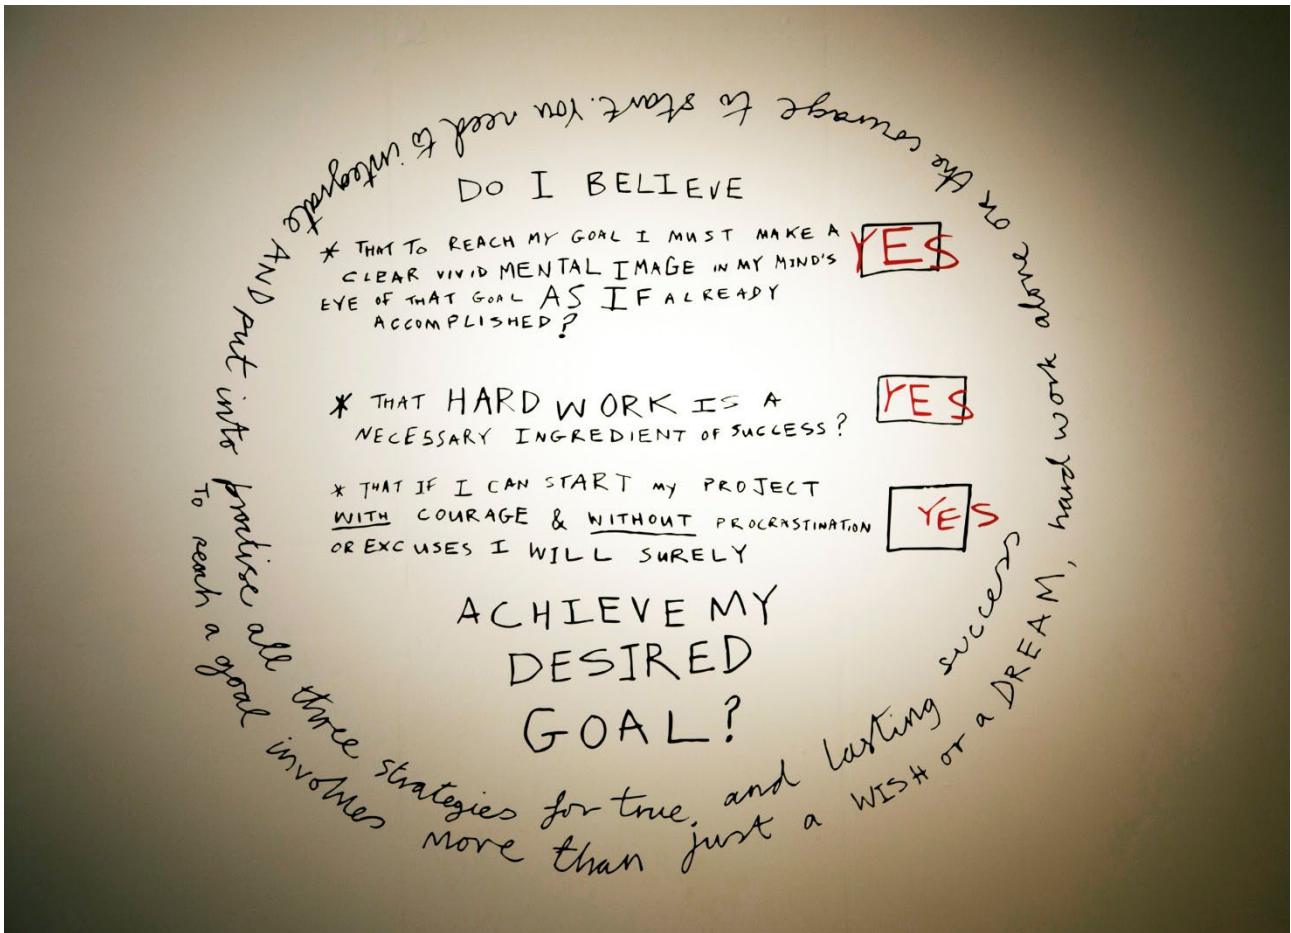 DO I BELIEVE
* THAT TO REACH MY GOAL I MUST MAKE A
CLEAR VIVID MENTAL IMAGE IN MY MIND'S
EYE OF THAT GOAL AS IF ALREADY
ACCOMPLISHED?
YES
* THAT HARD WORK IS A
NECESSARY INGREDIENT OF SUCCESS?
YES
* THAT IF I CAN START MY PROJECT
WITH COURAGE & WITHOUT PROCRASTINATION
OR EXCUSES I WILL SURELY
YES
ACHIEVE MY
DESIRED
GOAL?
To reach a goal involves more than just a WISH or a DREAM, hard work alone or the courage to start. You need to integrate AND put into practise all three strategies for true, and lasting success